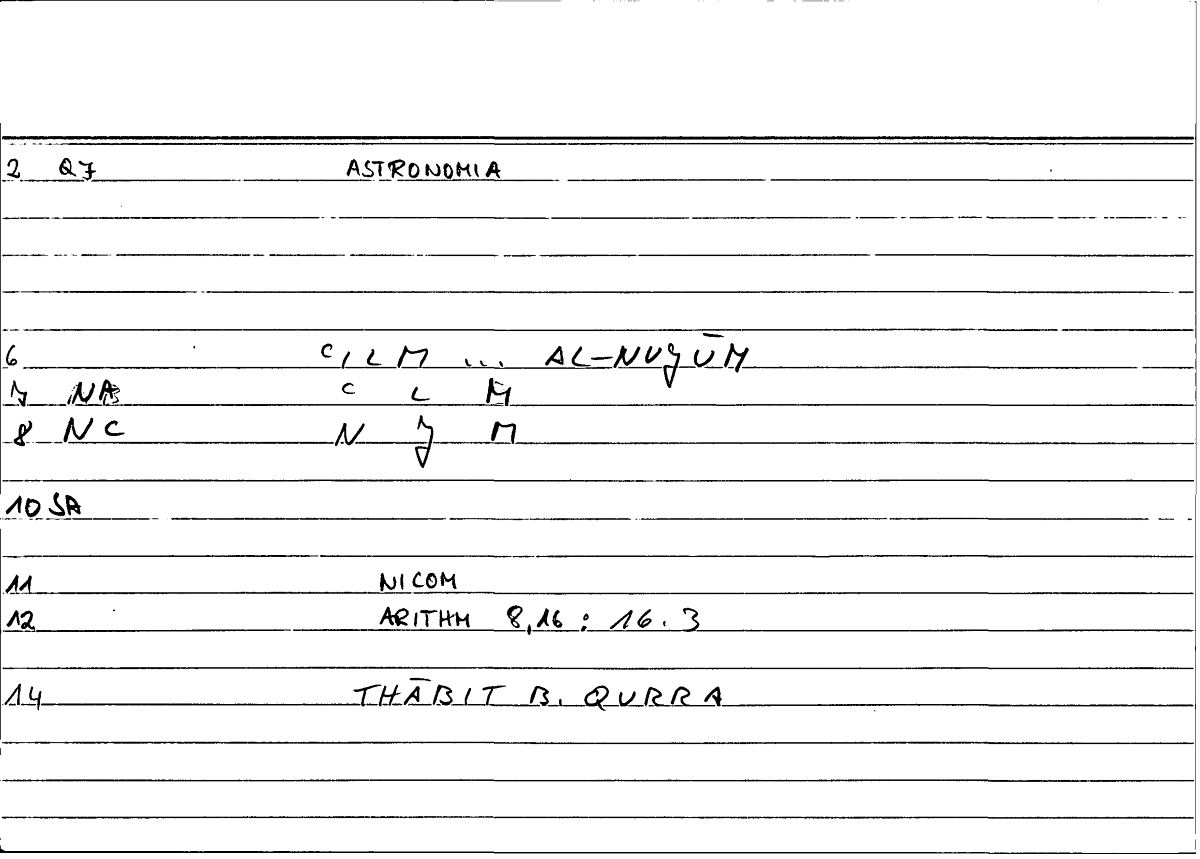 2 Q7 ASTRONOMIA
6 ᶜILM ... AL-NUǦŪM
7 NA ᶜ L M
8 NC N Ǧ M
10 SA
11 NICOM
12 ARITHM 8,16 : 16.3
14 THĀBIT B. QURRA